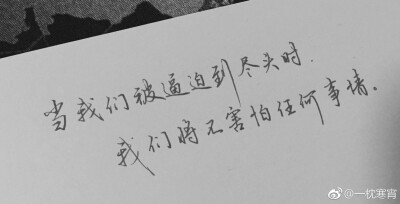 当我们被逼迫到尽头时.
我们将不害怕任何事情。
@一枕寒宵